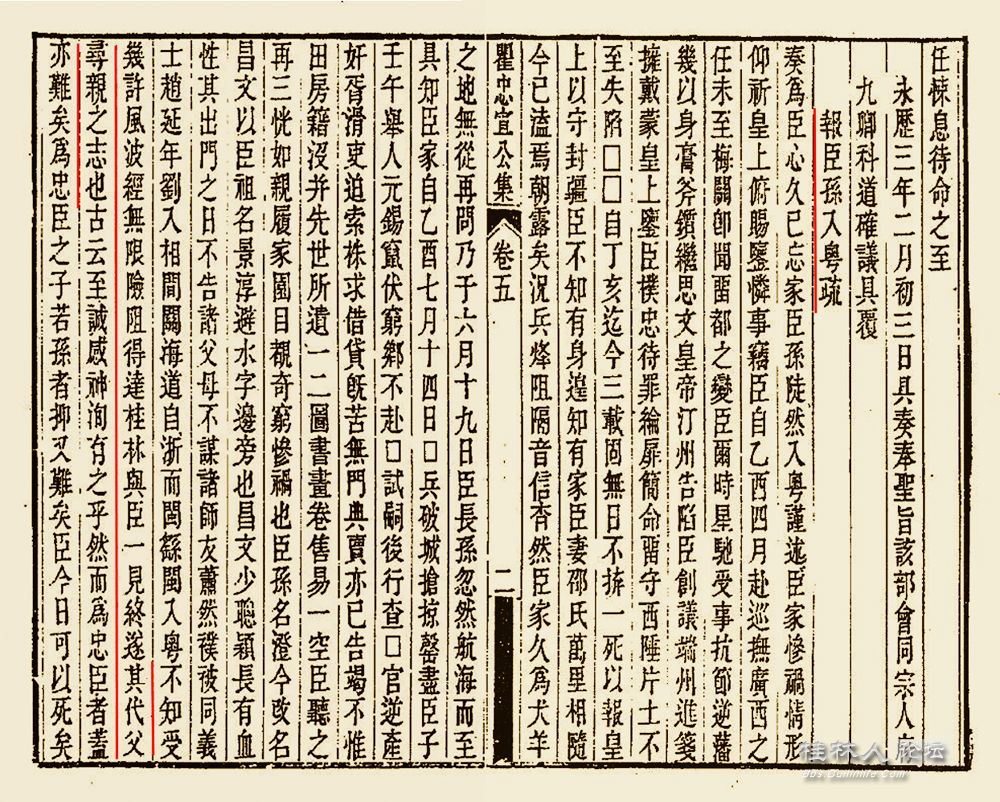 任悚息待命之至
永歷三年二月初三日具奏奉聖旨該部會同宗人府
九卿科道確議具覆
報臣孫入粵疏
奏爲臣心久已忘家臣孫陡然入粵謹述臣家慘禍情形
仰祈皇上俯賜鑒憐事竊臣自乙酉四月赴巡撫廣西之
任未至梅關卽聞畱都之變臣爾時星馳受事抗節逆藩
幾以身膏斧鑕繼思文皇帝汀州告陷臣創議端州進箋
擁戴蒙皇上鑒臣樸忠待罪綸扉簡命畱守西陲片土不
至失陷□□自丁亥迄今三載固無日不拚一死以報皇
上以守封疆臣不知有身遑知有家臣妻邵氏萬里相隨
今已溘焉朝露矣況兵烽阻隔音信杳然臣家久爲犬羊
瞿忠宣公集 卷五 二
之地無從再問乃于六月十九日臣長孫忽然航海而至
具知臣家自乙酉七月十四日□兵破城搶掠罄盡臣子
壬午舉人元錫竄伏窮鄉不赴□試嗣後行查□官逆產
奸胥滑吏迫索株求借貸旣苦無門典賣亦已告竭不惟
田房籍沒并先世所遺一二圖書畫卷售易一空臣聽之
再三恍如親履家園目覩奇窮慘禍也臣孫名澄今改名
昌文以臣祖名景淳避水字邊旁也昌文少聰穎長有血
性其出門之日不告諸父母不謀諸師友蕭然襆被同義
士趙延年劉入相間關海道自浙而閩繇閩入粵不知受
幾許風波經無限險阻得達桂林與臣一見終遂其代父
尋親之志也古云至誠感神洵有之乎然而爲忠臣者蓋
亦難矣爲忠臣之子若孫者抑又難矣臣今日可以死矣
桂林人论坛
bbs.Guilinlife.Com